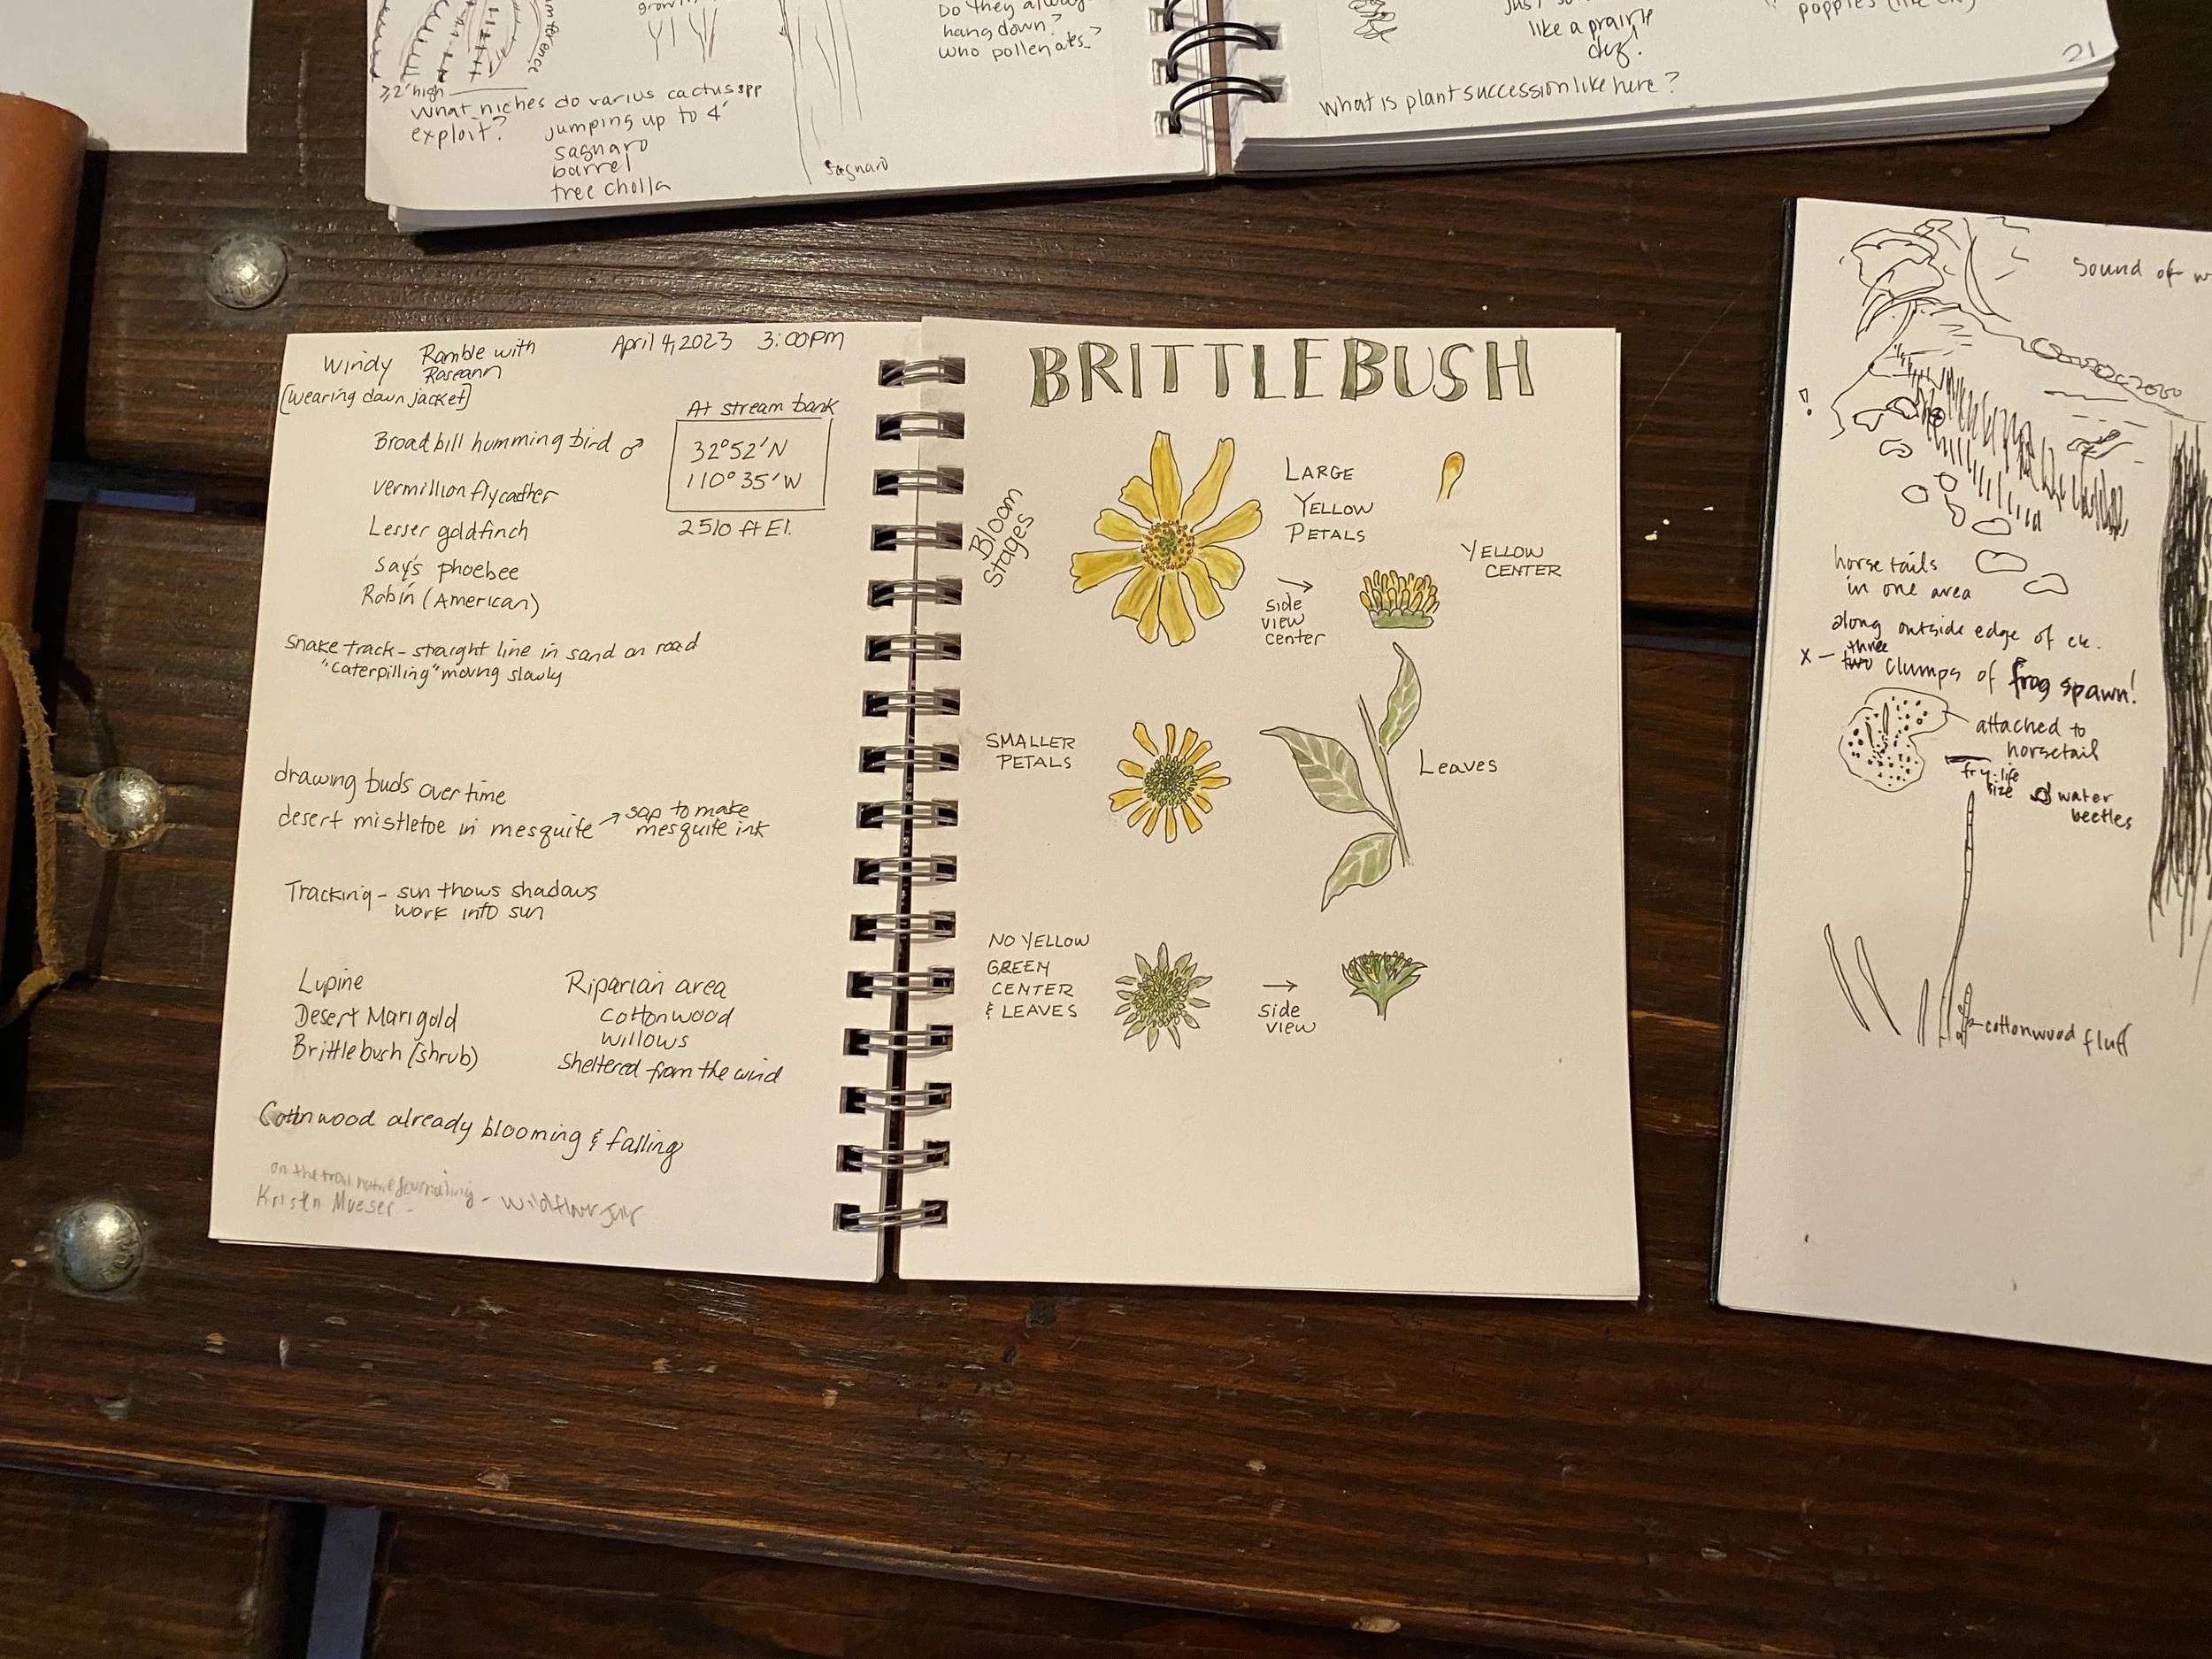 growth
Do they always
hang down?
who pollenates?
≥2' high
What niches do varius cactus spp
exploit?
jumping up to 4'
saguaro
barrel
tree cholla
saguaro
like a prairie
dog!
poppies (like CA)
21
What is plant succession like here?
Windy
Ramble with
Roseann
April 4, 2023 3:00PM
[wearing down jacket]
At stream bank
Broadbill hummingbird ♂
32°52'N
110°35'W
vermillion flycather
2510 ft El.
Lesser goldfinch
say's phoebee
Robin (American)
snake track - straight line in sand on road
"caterpilling" moving slowly
drawing buds over time
desert mistletoe in mesquite → sap to make
mesquite ink
Tracking - sun thows shadows
work into sun
Lupine
Desert Marigold
Brittlebush (shrub)
Riparian area
cottonwood
willows
sheltered from the wind
Cottonwood already blooming & falling
on the trail nature journaling -
Kristn Mueser -
BRITTLEBUSH
Bloom
Stages
LARGE
YELLOW
PETALS
YELLOW
CENTER
→
side
view
center
SMALLER
PETALS
Leaves
NO YELLOW
GREEN
CENTER
& LEAVES
→
side
view
sound of w
horsetails
in one area
along outside edge of ck.
x - three
two clumps of frog spawn!
attached to
horsetail
fry-life
size
water
beetles
cottonwood fluff